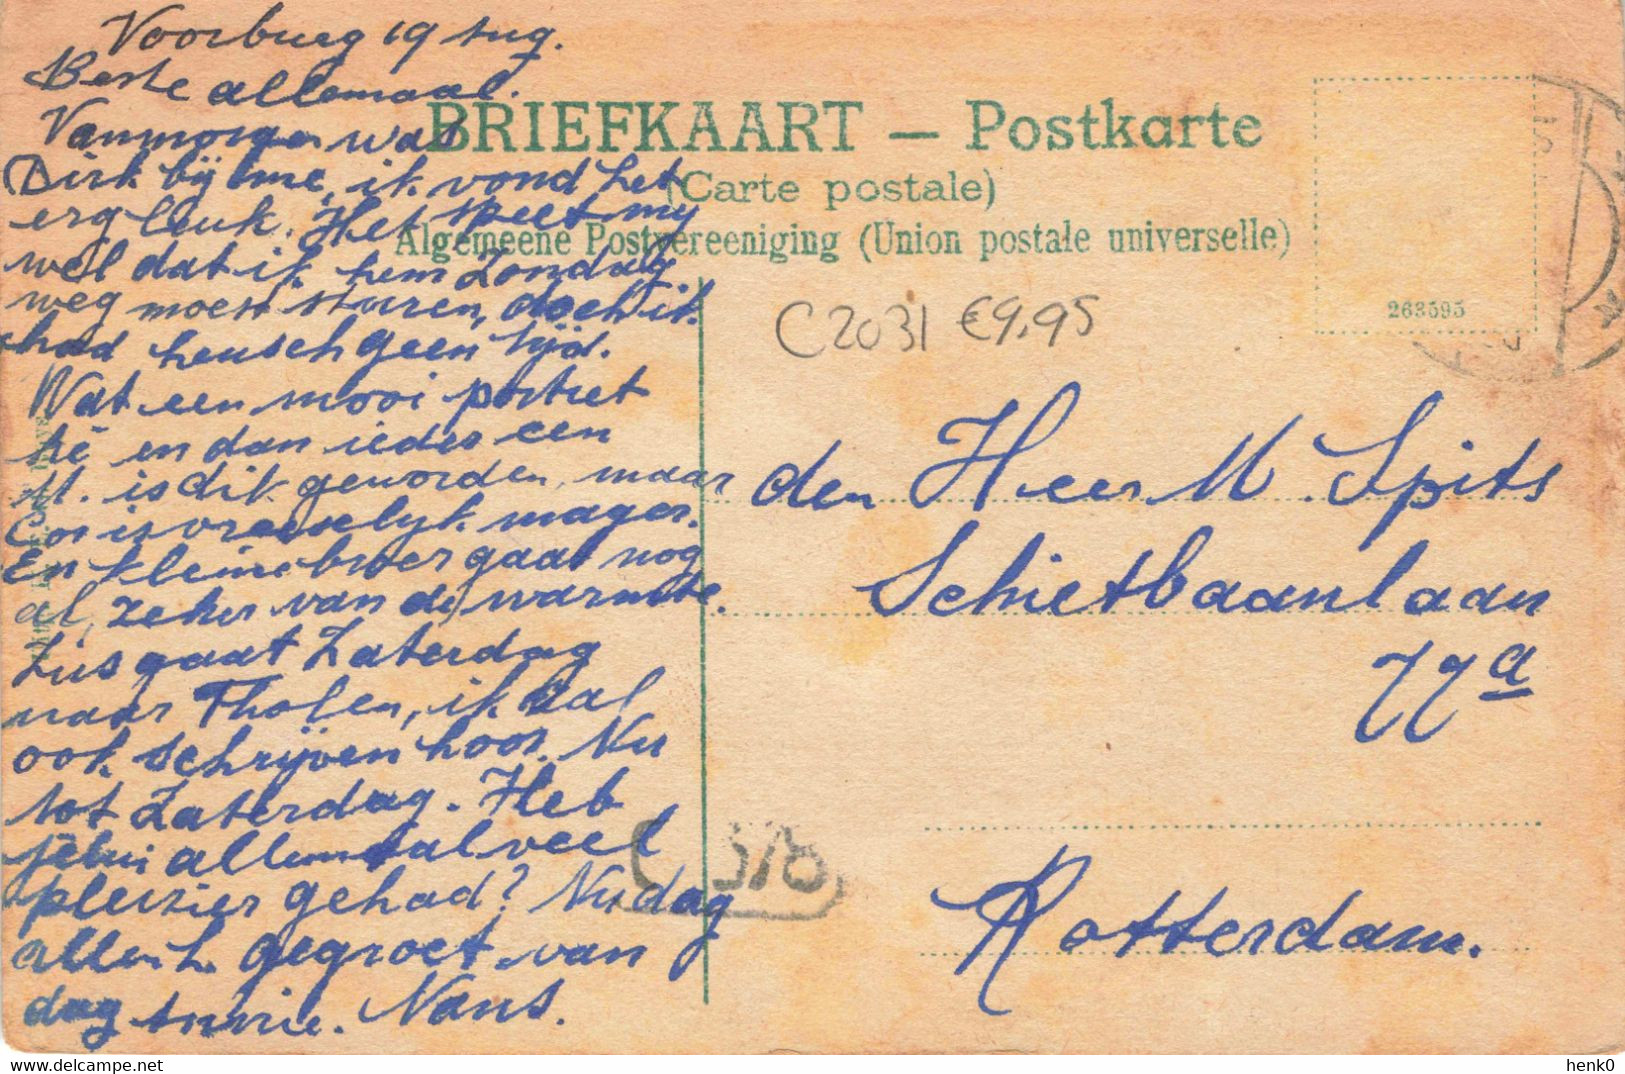 Voorburg 19 Aug.
Beste allemaal.
Vanmorgen was
Dirk bij me, ik vond het
erg leuk. Het speet my
wel dat ik hem Zondag
weg moest sturen, doch ik
had heusch geen tijd.
Wat een mooi portret
hè en dan ieder een
M. is dik geworden, maar
Cor is vreeselyk mager.
En kleine broer gaat nog
al, zeker van de warmte.
Zus gaat Zaterdag
naar Tholen, ik zal
ook schrijven hoor. Nu
tot Zaterdag. Heb
jelui allemaal veel
pleizier gehad? Nu dag
allen h. gegroet van
dag Annie. Nans.
BRIEFKAART — Postkarte
(Carte postale)
Algemeene Postvereeniging (Union postale universelle)
263595
C2031 €9,95
den Heer M. Spits
Schietbaanlaan
77a
Rotterdam.
henk0